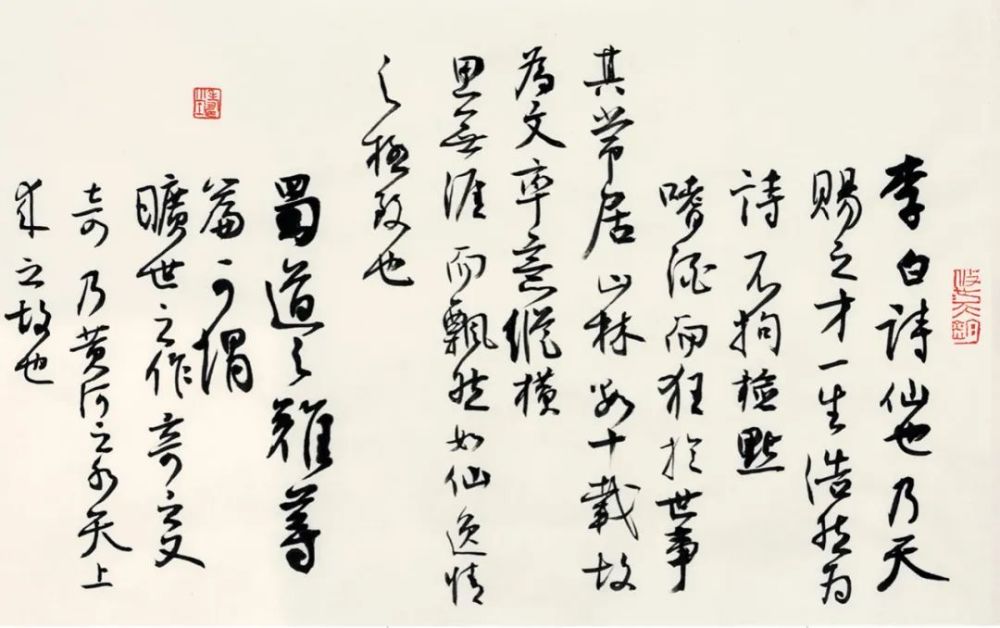 李白詩仙也乃天
賜之才一生浩然為
詩不拘檢點
嗜酒而狂於世事
其常居山林數十載故
為文率意縱橫
思無涯而飄然如仙逸情
之極致也
蜀道之難等
篇可謂
曠世之作奇之又
奇乃黃河之水天上
來之故也